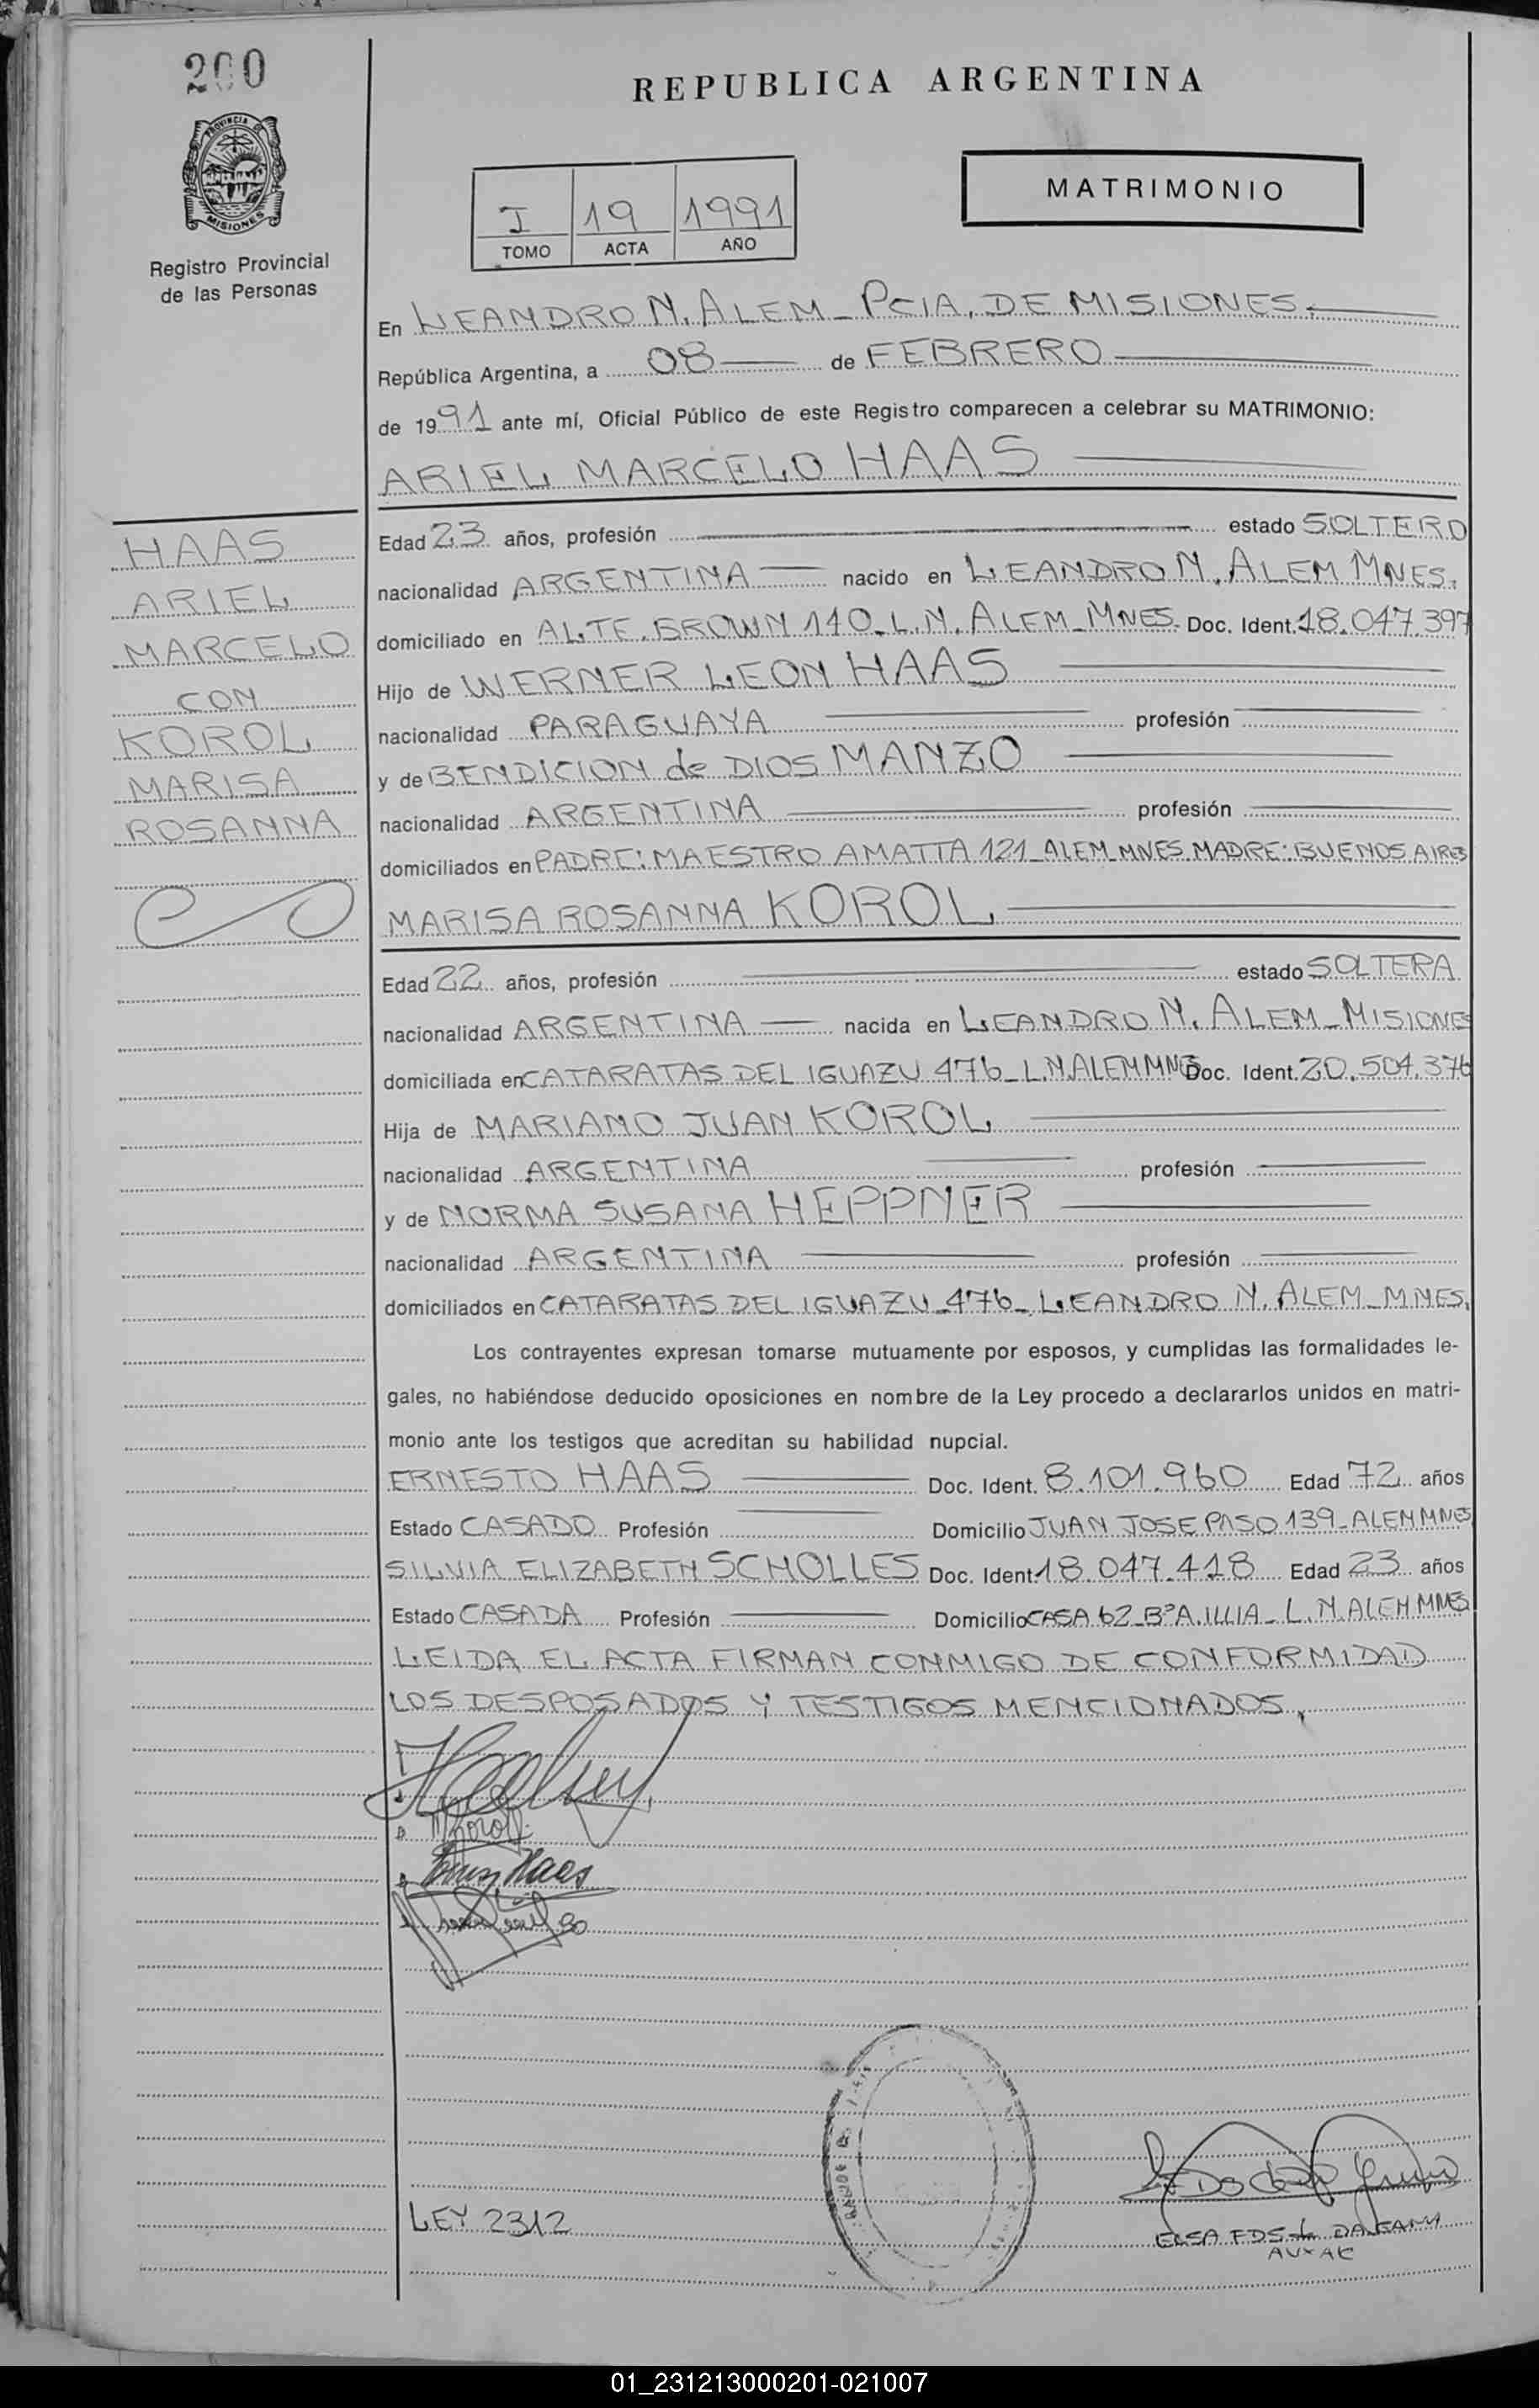 200
REPUBLICA ARGENTINA
PROVINCIA DE
MISIONES
Registro Provincial
de las Personas
I 19 1991
TOMO ACTA AÑO
MATRIMONIO
En LEANDRO N. ALEM - PCIA. DE MISIONES.
República Argentina, a 08 de FEBRERO
de 1991 ante mí, Oficial Público de este Registro comparecen a celebrar su MATRIMONIO:
ARIEL MARCELO HAAS
HAAS
ARIEL
MARCELO
CON
KOROL
MARISA
ROSANNA
Edad 23 años, profesión estado SOLTERO
nacionalidad ARGENTINA nacido en LEANDRO N. ALEM MNES.
domiciliado en ALTE. BROWN 110 - L.N. ALEM - MNES. Doc. Ident. 18.047.397
Hijo de WERNER LEON HAAS
nacionalidad PARAGUAYA profesión
y de BENDICION de DIOS MANZO
nacionalidad ARGENTINA profesión
domiciliados en PADRE: MAESTRO AMATTA 121 - ALEM MNES. MADRE: BUENOS AIRES
MARISA ROSANNA KOROL
Edad 22 años, profesión estado SOLTERA
nacionalidad ARGENTINA nacida en LEANDRO N. ALEM - MISIONES
domiciliada en CATARATAS DEL IGUAZU 476 - L.N. ALEM MNES Doc. Ident. 20.504.376
Hija de MARIANO JUAN KOROL
nacionalidad ARGENTINA profesión
y de NORMA SUSANA HEPPNER
nacionalidad ARGENTINA profesión
domiciliados en CATARATAS DEL IGUAZU - 476 - LEANDRO N. ALEM - MNES.
Los contrayentes expresan tomarse mutuamente por esposos, y cumplidas las formalidades le-
gales, no habiéndose deducido oposiciones en nombre de la Ley procedo a declararlos unidos en matri-
monio ante los testigos que acreditan su habilidad nupcial.
ERNESTO HAAS Doc. Ident. 8.101.960 Edad 72 años
Estado CASADO Profesión Domicilio JUAN JOSE PASO 139 - ALEM MNES
SILVIA ELIZABETH SCHOLLES Doc. Ident. 18.047.418 Edad 23 años
Estado CASADA Profesión Domicilio CASA 62 - Bº A. ILLIA - L. N. ALEM MNES
LEIDA EL ACTA FIRMAN CONMIGO DE CONFORMIDAD
LOS DESPOSADOS Y TESTIGOS MENCIONADOS.
Haas
LEY 2312
ELSA
01_231213000201-021007